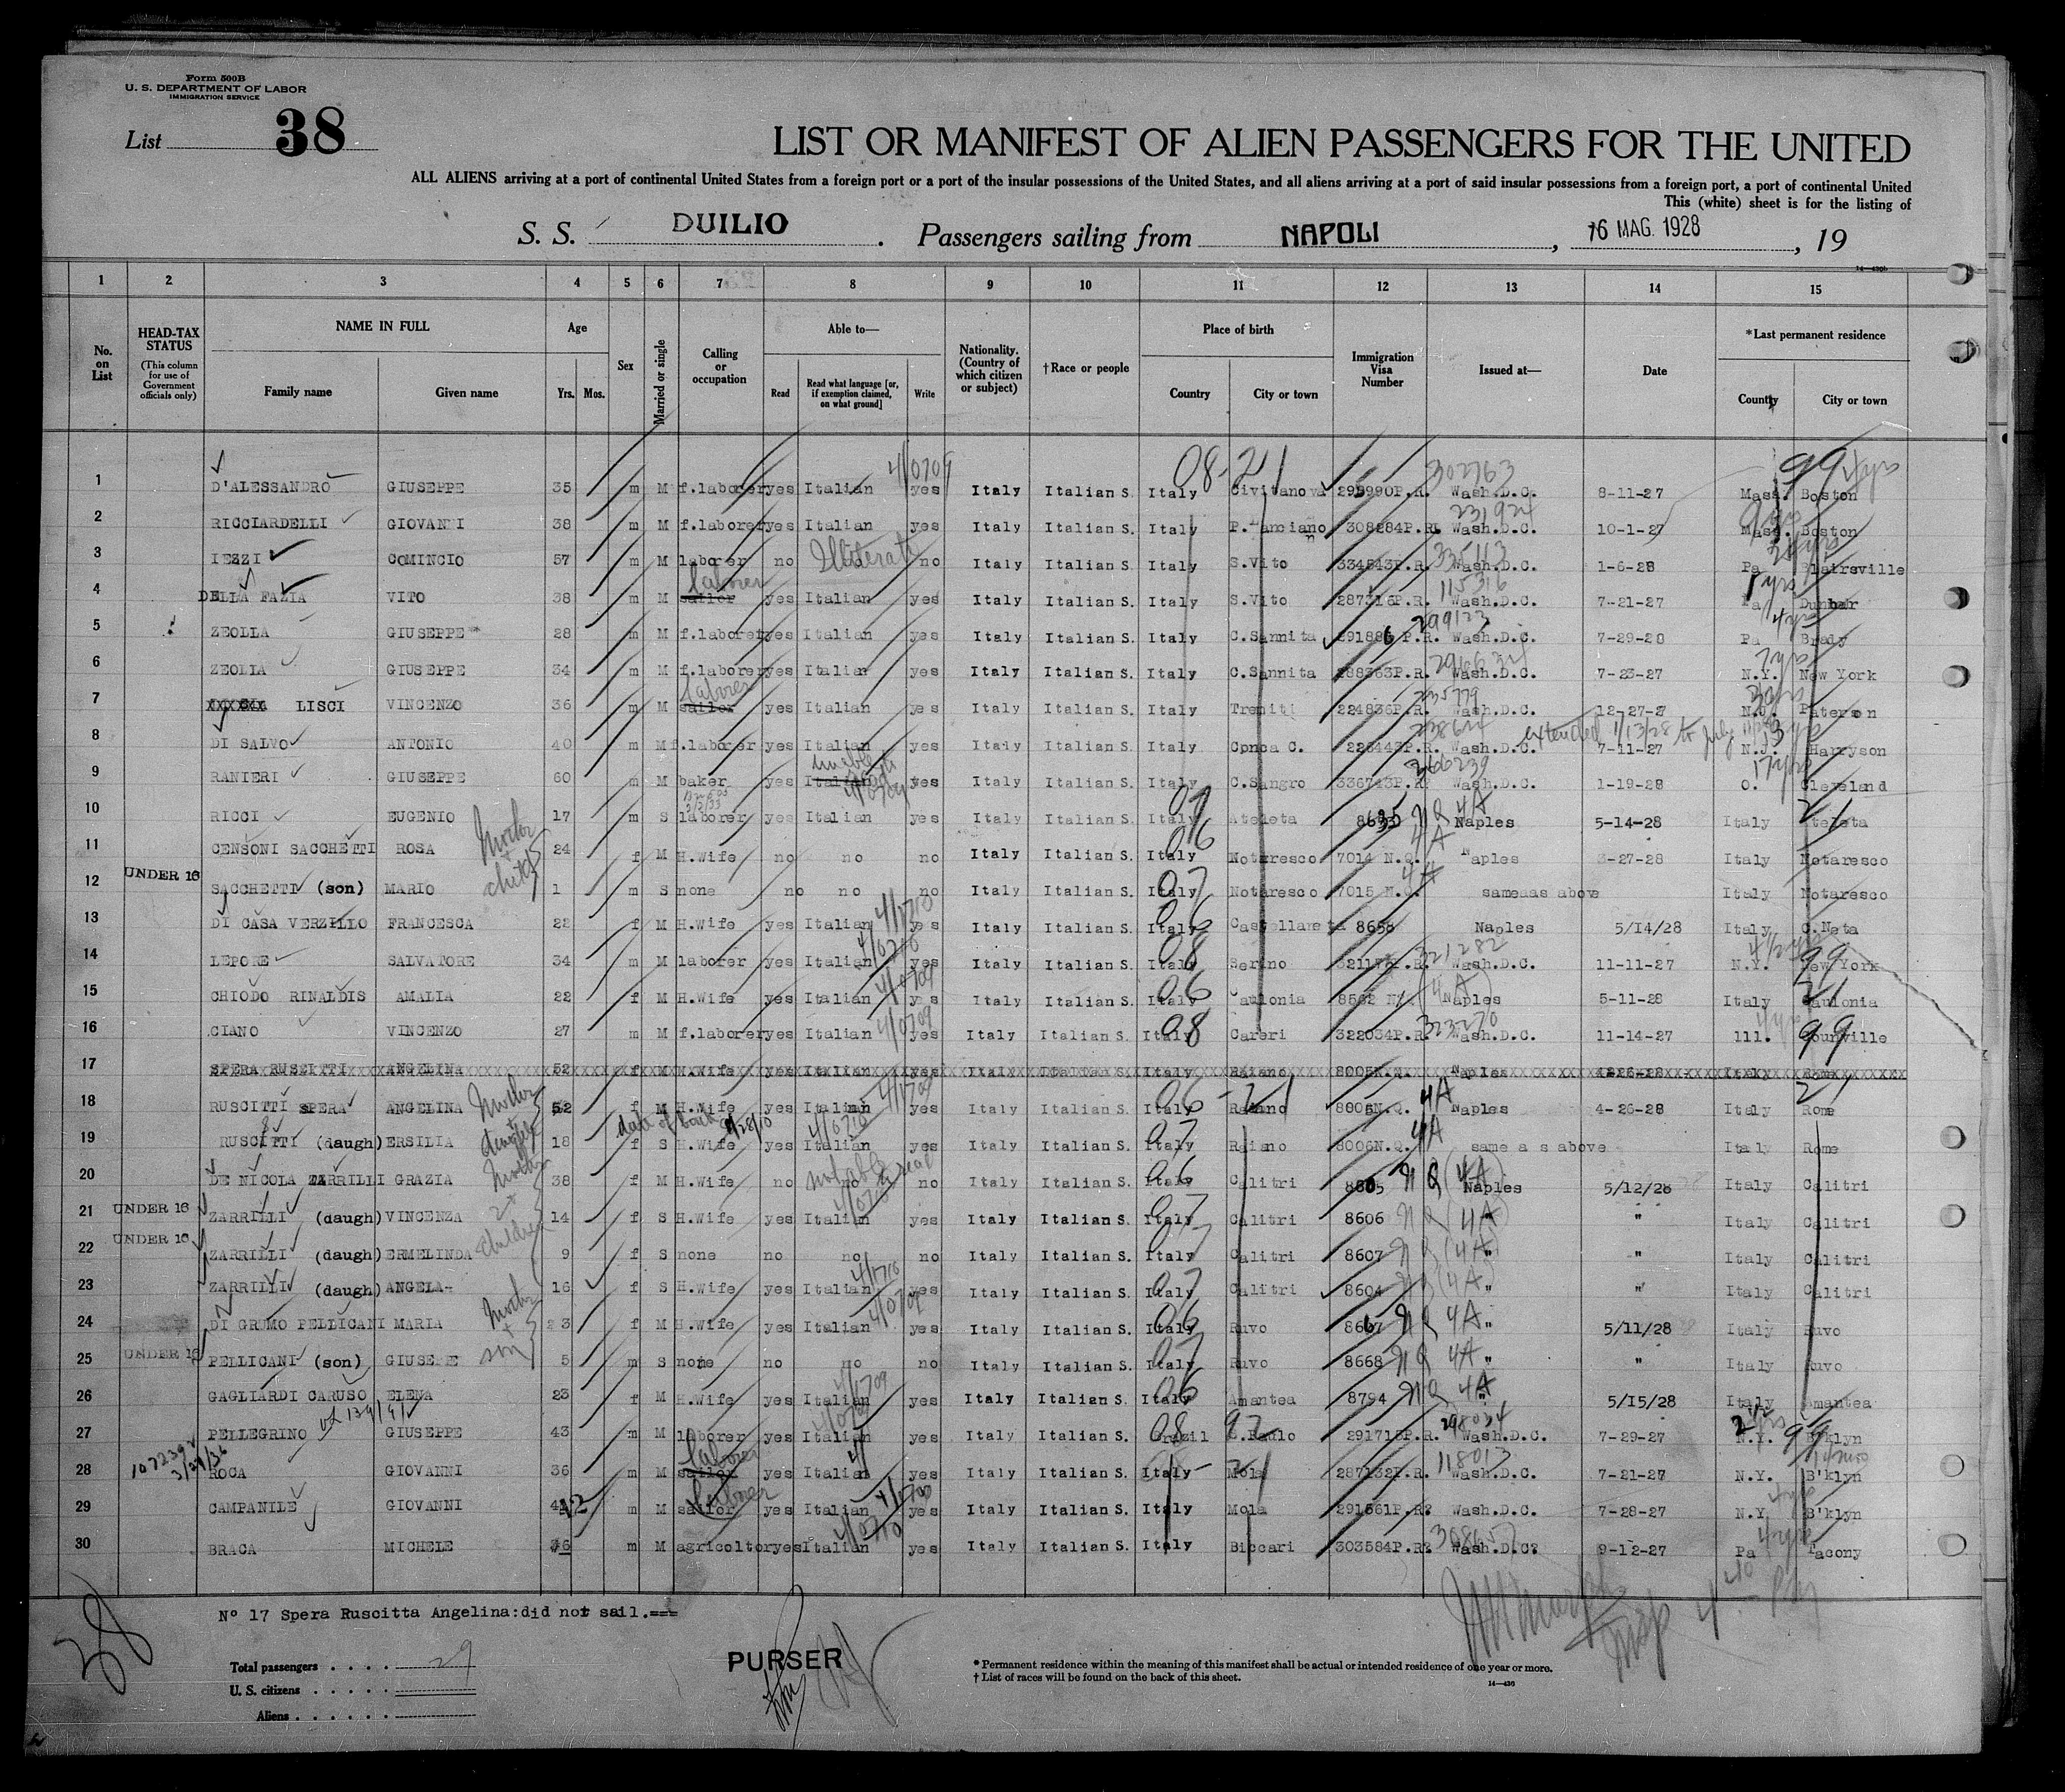 Form 500B
U. S. DEPARTMENT OF LABOR
IMMIGRATION SERVICE
List 38
LIST OR MANIFEST OF ALIEN PASSENGERS FOR THE UNITED
ALL ALIENS arriving at a port of continental United States from a foreign port or a port of the insular possessions of the United States, and all aliens arriving at a port of said insular possessions from a foreign port, a port of continental United
This (white) sheet is for the listing of
S. S. DUILIO. Passengers sailing from NAPOLI, 16 MAG. 1928, 19
1 2 3 4 5 6 7 8 9 10 11 12 13 14 15
No. on List
HEAD-TAX STATUS (This column for use of Government officials only)
NAME IN FULL Family name Given name
Age Yrs. Mos.
Sex
Married or single
Calling or occupation
Able to— Read Read what language [or, if exemption claimed, on what ground] Write
Nationality. (Country of which citizen or subject)
†Race or people
Place of birth Country City or town
Immigration Visa Number
Issued at—
Date
*Last permanent residence Country City or town
1 D'ALESSANDRO GIUSEPPE 35 m M f.laborer yes Italian yes Italy Italian S. Italy Civitanova P.R. Wash.D.C. 8-11-27 Mass. Boston
2 RICCIARDELLI GIOVANNI 38 m M f.laborer yes Italian yes Italy Italian S. Italy 308284P.R. Wash.D.C. 10-1-27 Mass. Boston
3 IEZZI COMINCIO 57 m M laborer no Illiterate no Italy Italian S. Italy S.Vito 334543P.R. Wash.D.C. 1-6-28 Pa Blairsville
4 DELLA FAZIA VITO 38 m M sailor laborer yes Italian yes Italy Italian S. Italy S.Vito 287316P.R. 115316 Wash.D.C. 7-21-27 Pa Dunbar
5 ZEOLLA GIUSEPPE 28 m M f.laborer yes Italian yes Italy Italian S. Italy C.Sannita 291886 P.R. Wash.D.C. 7-29-28 Pa Brady
6 ZEOLLA GIUSEPPE 34 m M f.laborer yes Italian yes Italy Italian S. Italy C.Sannita 288363P.R. Wash.D.C. 7-23-27 N.Y. New York
7 LISCI VINCENZO 36 m M sailor laborer yes Italian yes Italy Italian S. Italy Tremiti 224836P.R. Wash.D.C. 12-27-27 N.J. Paterson
8 DI SALVO ANTONIO 40 m M f.laborer yes Italian yes Italy Italian S. Italy Conca C. 226443P.R. Wash.D.C. 7-11-27 N.J. Harryson
extended 1/13/28 to July
9 RANIERI GIUSEPPE 60 m M baker yes Italian yes Italy Italian S. Italy C.Sangro 336743P.R. 366239 Wash.D.C. 1-19-28 O. Cleveland
10 RICCI EUGENIO 17 m S laborer yes Italian yes Italy Italian S. Italy Ateleta NQ 4A Naples 5-14-28 Italy Ateleta
11 CENSONI SACCHETTI ROSA 24 f M H.Wife no no no Italy Italian S. Italy Notaresco 7014 N.Q. 4A Naples 3-27-28 Italy Notaresco
Mother + child
12 UNDER 16 SACCHETTI (son) MARIO 1 m S none no no no Italy Italian S. Italy Notaresco 7015 N.Q. 4A sameaas above Italy Notaresco
13 DI CASA VERZILLO FRANCESCA 22 f M H.Wife yes Italian yes Italy Italian S. Italy 8658 Naples 5/14/28 Italy C.Neta
14 LEPORE SALVATORE 34 m M laborer yes Italian yes Italy Italian S. Italy Serino P.R. 321282 Wash.D.C. 11-11-27 N.Y. New York
15 CHIODO RINALDIS AMALIA 22 f M H.Wife yes Italian yes Italy Italian S. Italy Caulonia 8562 N.Q. (4A) Naples 5-11-28 Italy Caulonia
16 CIANO VINCENZO 27 m M f.laborer yes Italian yes Italy Italian S. Italy Careri 322034P.R. 323270 Wash.D.C. 11-14-27 Ill. 99
17 SPERA RUSCITTI ANGELINA 52 f M H.Wife yes Italian yes Italy Italian S. Italy Raiano 8005N.Q. Naples 4-26-28 Italy Rome
18 RUSCITTI SPERA ANGELINA 52 f M H.Wife yes Italian yes Italy Italian S. Italy Raiano 8005N.Q. 4A Naples 4-26-28 Italy Rome
Mother + daughter
19 RUSCITTI (daugh) ERSILIA 18 f S H.Wife yes Italian yes Italy Italian S. Italy Raiano 8006N.Q. 4A same a s above Italy Rome
20 DE NICOLA ZARRILLI GRAZIA 38 f M H.Wife no not able to read no Italy Italian S. Italy Calitri 8605 NQ (4A) Naples 5/12/28 Italy Calitri
Mother 2+ children
21 UNDER 16 ZARRILLI (daugh) VINCENZA 14 f S H.Wife yes Italian yes Italy Italian S. Italy Calitri 8606 NQ (4A) " " Italy Calitri
22 UNDER 16 ZARRILLI (daugh) ERMELINDA 9 f S none no no no Italy Italian S. Italy Calitri 8607 NQ (4A) " " Italy Calitri
23 ZARRILLI (daugh) ANGELA 16 f S H.Wife yes Italian yes Italy Italian S. Italy Calitri 8604 NQ (4A) " " Italy Calitri
24 DI GRUMO PELLICANI MARIA 23 f M H.Wife yes Italian yes Italy Italian S. Italy Ruvo 8667 NQ 4A " 5/11/28 Italy Ruvo
Mother + son
25 UNDER 16 PELLICANI (son) GIUSEPE 5 m S none no no no Italy Italian S. Italy Ruvo 8668 NQ 4A " " Italy Ruvo
26 GAGLIARDI CARUSO ELENA 23 f M H.Wife yes Italian yes Italy Italian S. Italy Amantea 8794 NQ 4A " 5/15/28 Italy Amantea
27 PELLEGRINO GIUSEPPE 43 m M laborer yes Italian yes Italy Italian S. Brazil S.Paulo 291715P.R. 298034 Wash.D.C. 7-29-27 N.Y. B'klyn
28 ROCA GIOVANNI 36 m M sailor laborer yes Italian yes Italy Italian S. Italy Mola 287132P.R. 118013 Wash.D.C. 7-21-27 N.Y. B'klyn
29 CAMPANILE GIOVANNI 42 m M sailor laborer yes Italian yes Italy Italian S. Italy Mola 291561P.R? Wash.D.C. 7-28-27 N.Y. B'klyn
30 BRACA MICHELE 36 m M agricoltor yes Italian yes Italy Italian S. Italy Biccari 303584P.R? Wash.D.C? 9-12-27 Pa Tacony
Nº 17 Spera Ruscitta Angelina:did not sail.===
38
Total passengers . . . . 29
U. S. citizens . . . . .
Aliens . . . . . .
PURSER
* Permanent residence within the meaning of this manifest shall be actual or intended residence of one year or more.
† List of races will be found on the back of this sheet.
14—436